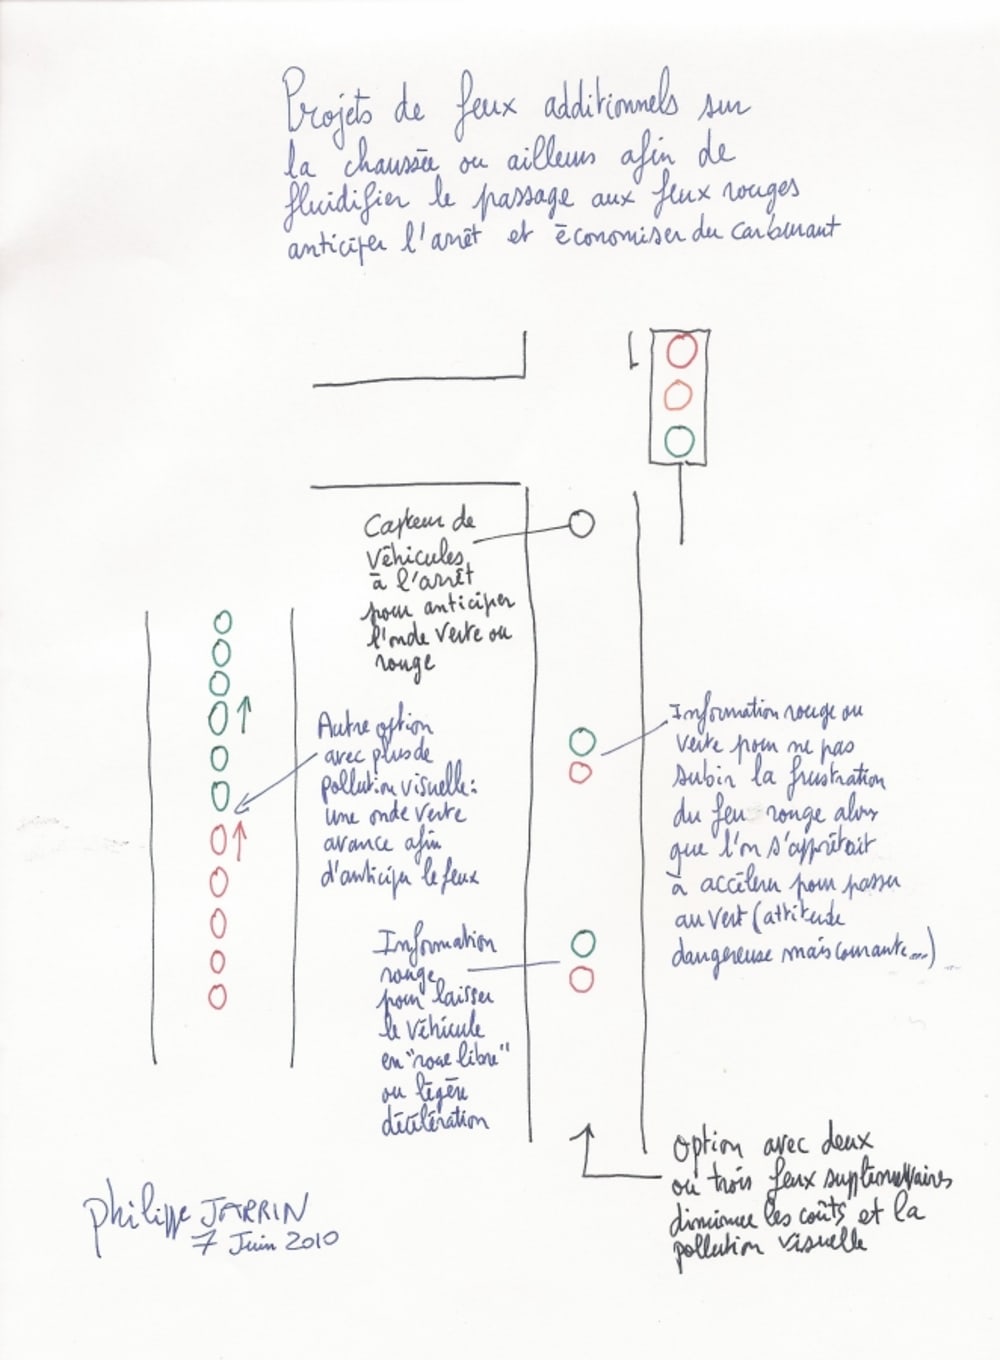 Projets de feux additionnels sur
la chaussée ou ailleurs afin de
fluidifier le passage aux feux rouges
anticiper l'arrêt et économiser du carburant
Capteur de
véhicules
à l'arrêt
pour anticiper
l'onde verte ou
rouge
Autre option
avec plus de
pollution visuelle:
une onde verte
avance afin
d'anticiper le feux
Information rouge ou
verte pour ne pas
subir la frustration
du feu rouge alors
que l'on s'apprêtait
à accélérer pour passer
au vert (attitude
dangereuse mais courante...)
Information
rouge
pour laisser
le véhicule
en "roue libre"
ou légère
décélération
Option avec deux
ou trois feux supplémentaires
diminuer les coûts et la
pollution visuelle
Philippe JARRIN
7 Juin 2010